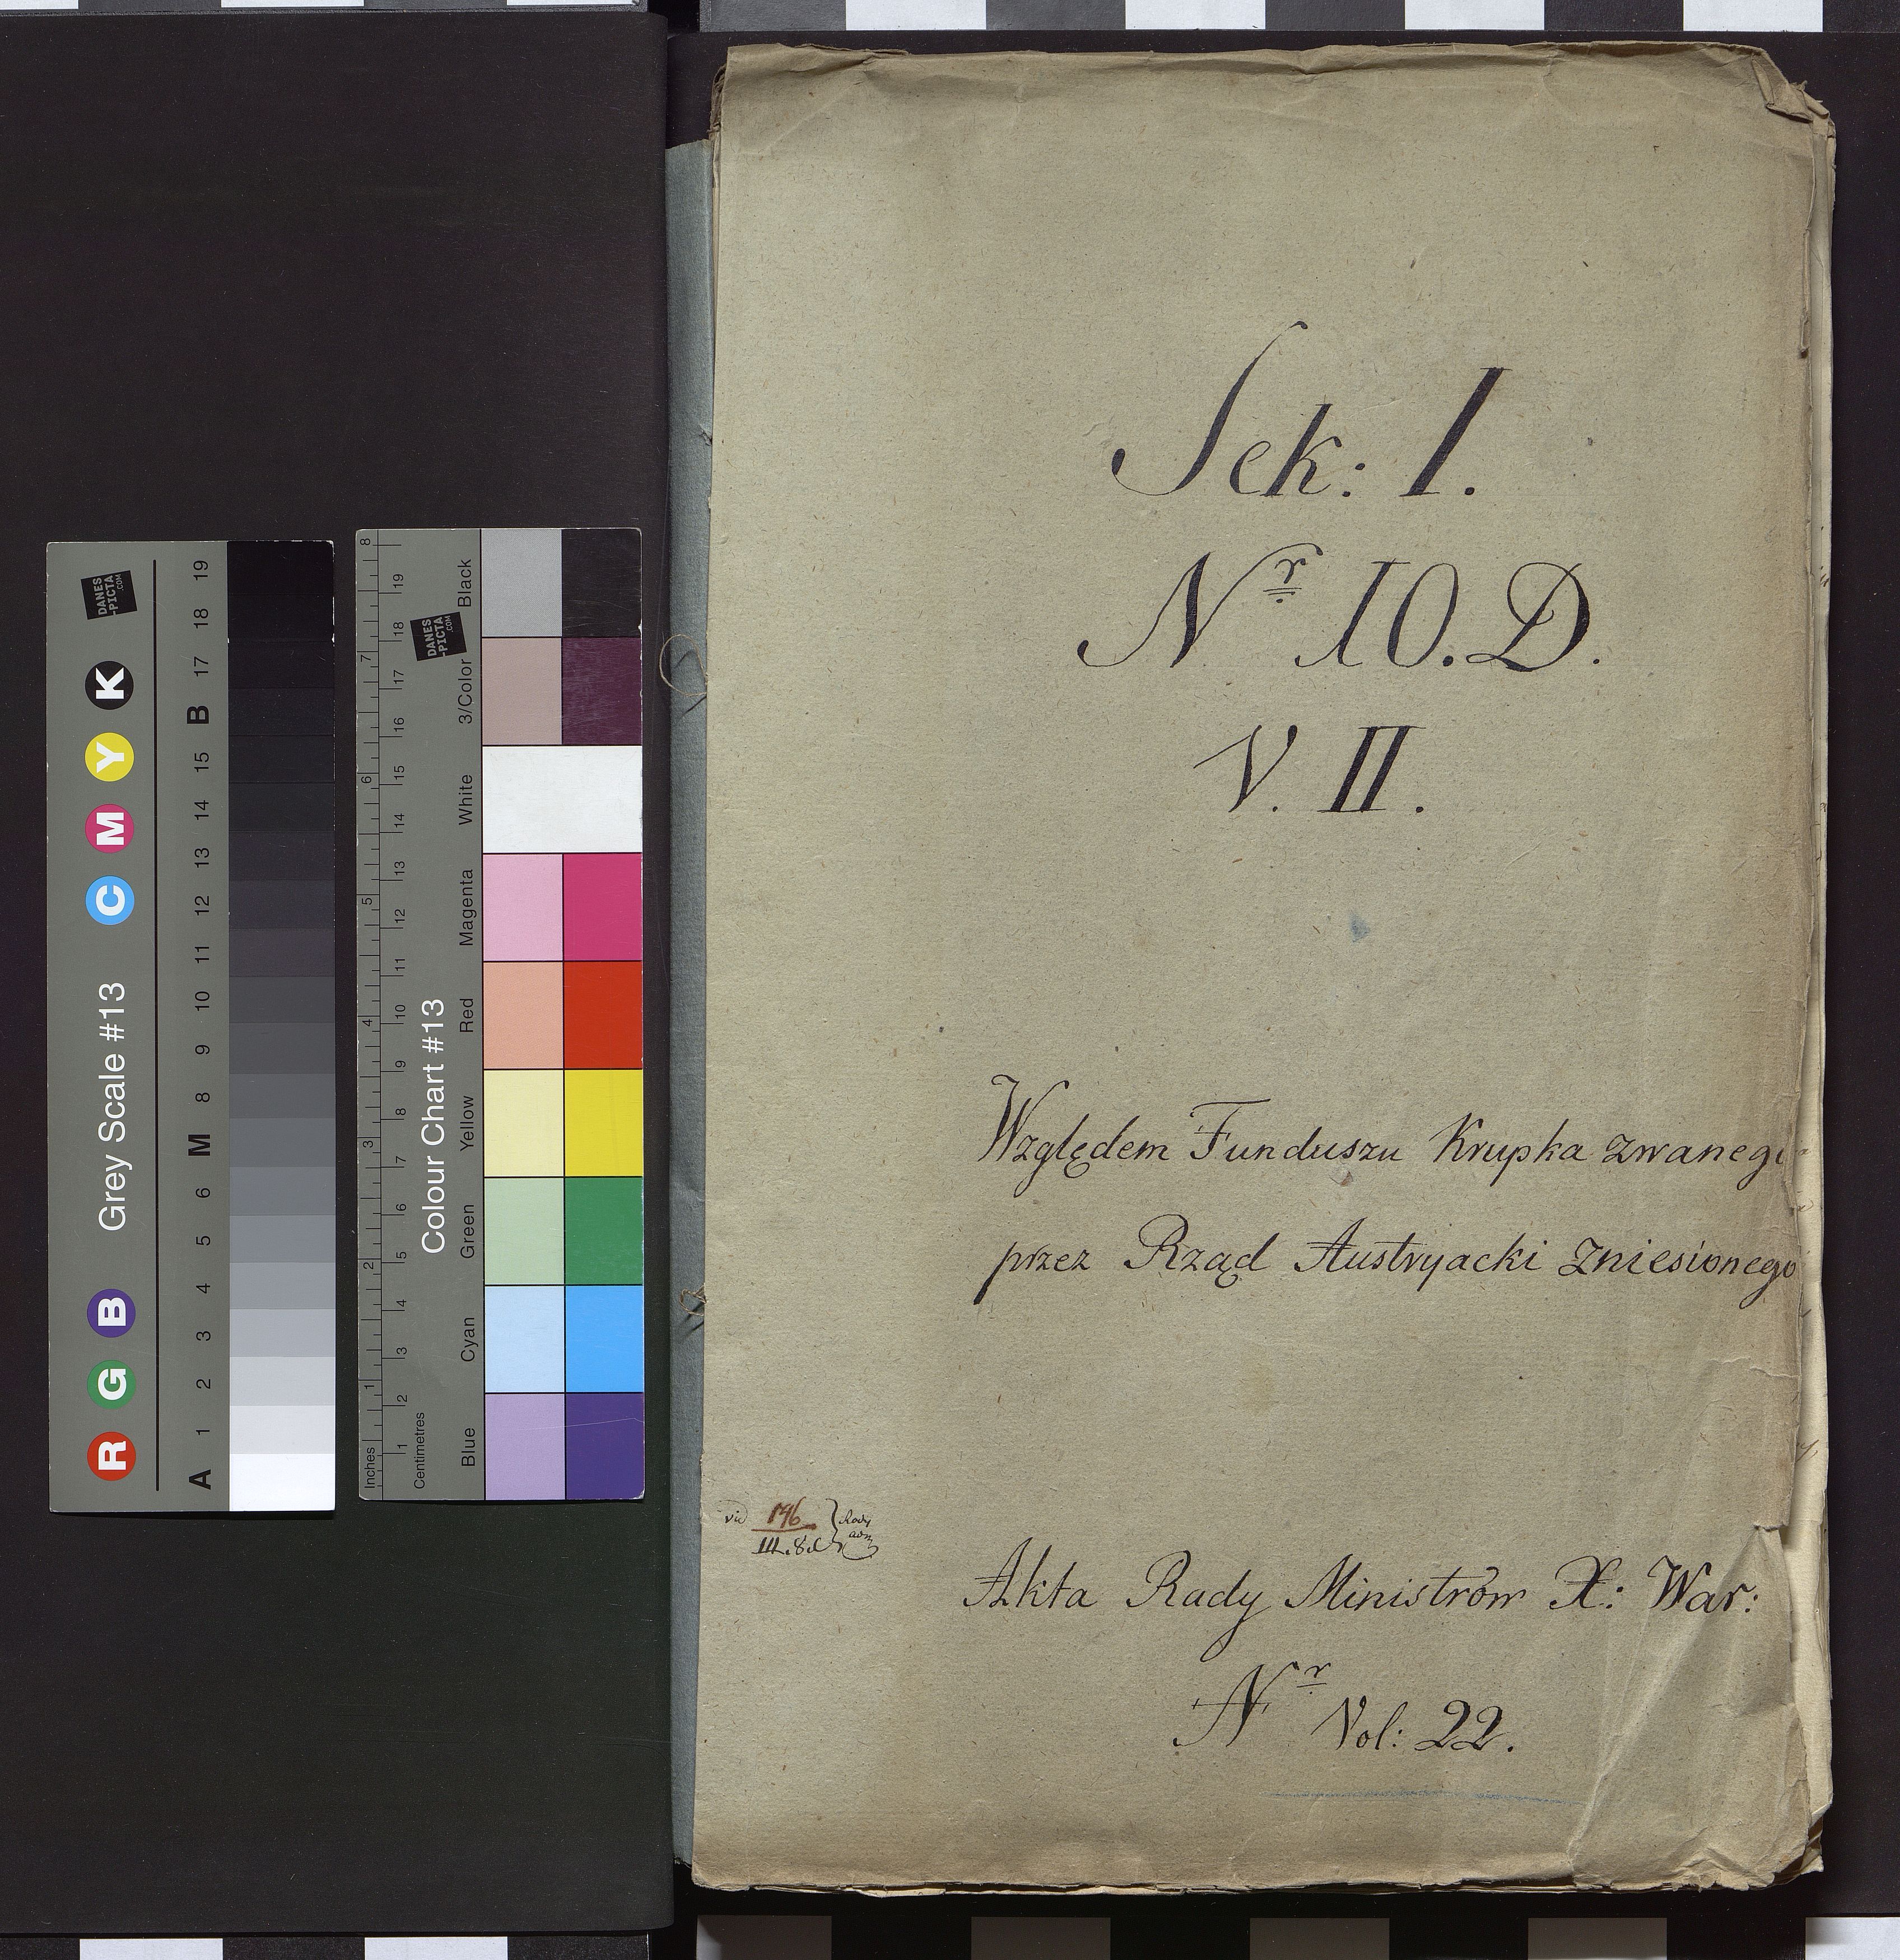 Sek: I.
Nr 10. D.
V. II.
Względem Funduszu Krupka zwanego
przez Rząd Austryacki zniesionego
vid 196
III. 8
Rady
adm
Akta Rady Ministrów X: War:
Nr Vol: 22.
Grey Scale #13
R G B C M Y K
A 1 2 3 4 5 6 M 8 9 10 11 12 13 14 15 B 17 18 19
DANES
-PICTA
.COM
Colour Chart #13
Blue Cyan Green Yellow Red Magenta White 3/Color Black
Inches 1 2 3 4 5 6 7 8
Centimetres 1 2 3 4 5 6 7 8 9 10 11 12 13 14 15 16 17 18 19
DANES
-PICTA
.COM